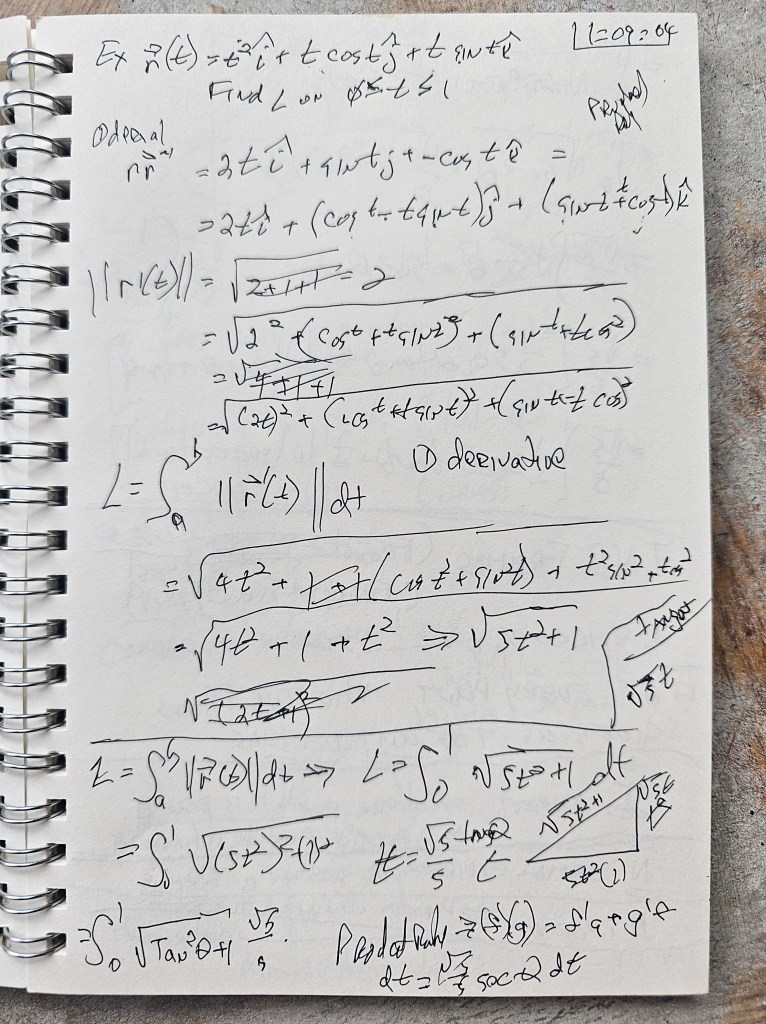 Ex r⃗(t) = t² î + t cos t ĵ + t sin t k̂
11=09=04
Find L on 0 ≤ t ≤ 1
Product
① 
= 2t î + sin t j + - cos t k̂ =
= 2t î + (cos t - t sin t) ĵ + (sin t + t cos t) k̂
||r'(t)|| = √2+1+1 = 2
= √2² + (cos t + t sin t)² + (sin t + t cos²)
= √4+1+1
= √(2t)² + (cos t + t sin t)² + (sin t - t cos)²
① derivative
L = ∫ₐᵇ ||r⃗'(t)|| dt
= √4t² + (cos t² + sin² t) + t² sin² + t cos²
= √4t² + 1 + t² ⇒ √5t²+1
√5 t
L = ∫ₐᵇ ||r⃗'(t)|| dt ⇒ L = ∫₀¹ √5t²+1 dt
√5t²+1
√5t
= ∫₀¹ √(5t²)² + (1)² t = √5/5 tan θ
5t² (1)
= ∫₀¹ √Tan² θ + 1 √5/5 .
Product Rule = (f)(g) = f'g + g'f
dt = √5/5 sec² θ dt